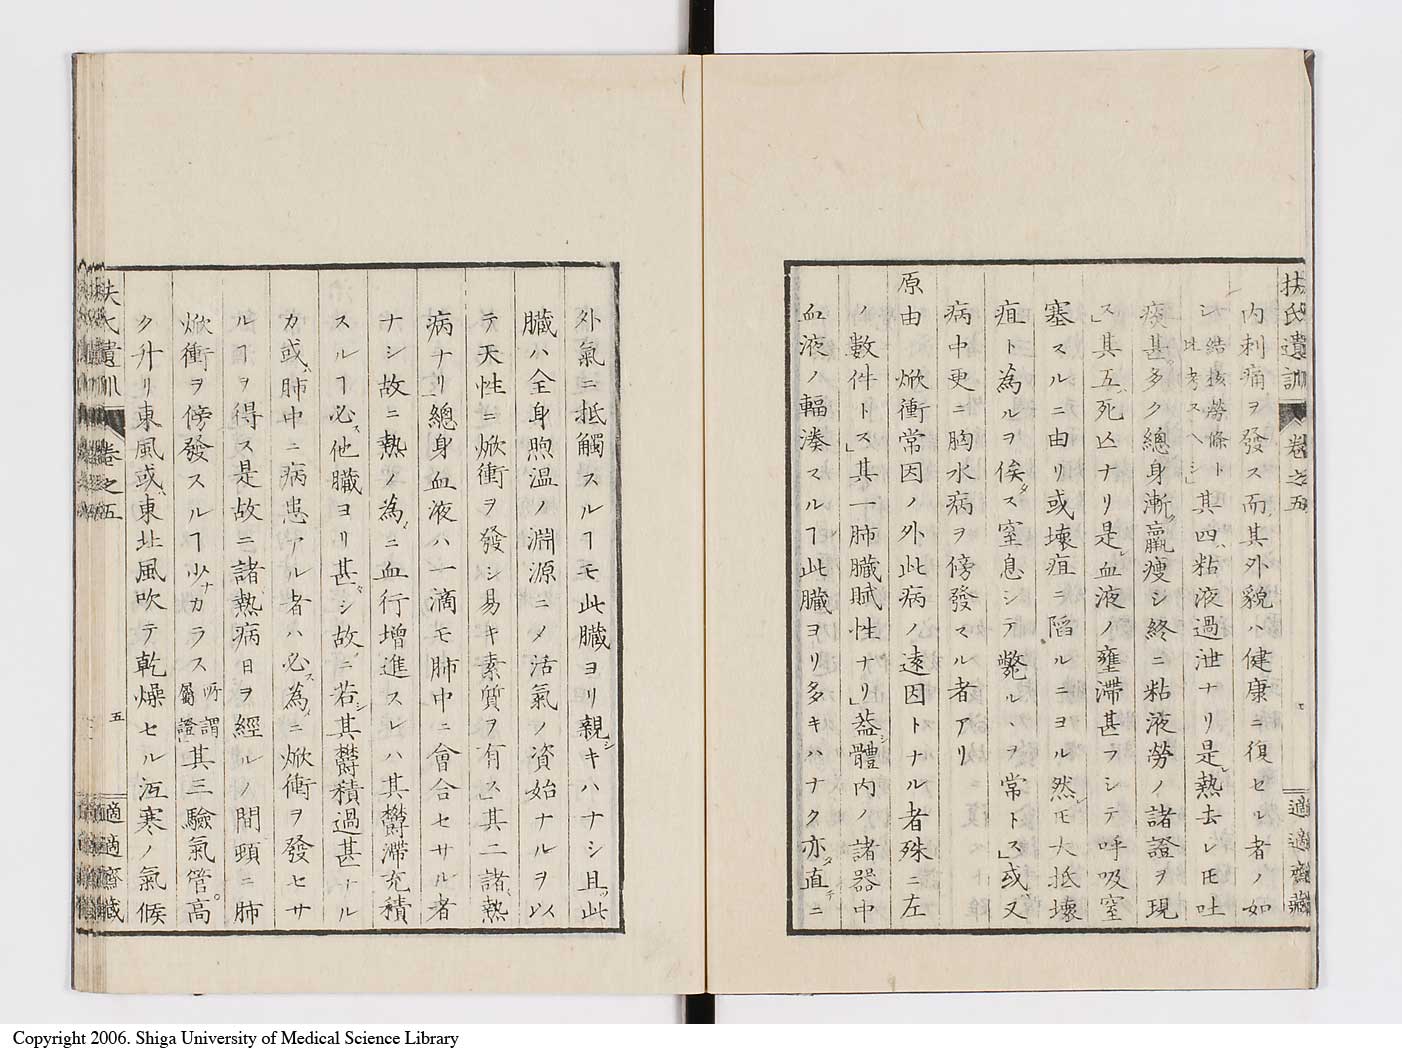 扶氏遺訓 卷之五 適適齋藏
内刺痛ヲ發ス而ノ其外貌ハ健康ニ復セル者ノ如
シ 結核勞條ト比考スヘシ」其四、粘液過泄ナリ是レ熱去レ𪜈吐
痰甚タ多ク總身漸ク羸瘦シ終ニ粘液勞ノ諸證ヲ現
ス」其五、死亡ナリ是レ血液ノ壅滯甚フシテ呼吸窒
塞スルニ由リ或壞疽ニ陷ルニヨル然レ𪜈大抵壞
疽ト為ルヲ俟タス窒息シテ斃ルヽヲ常トス」或ハ又
病中更ニ胸水病ヲ傍發スル者アリ
原由 焮衝常因ノ外此病ノ遠因トナル者殊ニ左
ノ數件トス」其一肺臟賦性ナリ」葢シ體内ノ諸器中
血液ノ輻湊スルヿ此臟ヨリ多キハナク亦タ直チニ
外氣ニ抵觸スルヿモ此臟ヨリ親シキハナシ且ツ此
臟ハ全身煦温ノ淵源ニ〆活氣ノ資始ナルヲ以
テ天性ニ焮衝ヲ發シ易キ素質ヲ有ス」其二諸熱
病ナリ總身血液ハ一滴モ肺中ニ會合セサル者
ナシ故ニ熱ノ為メニ血行增進スレハ其欝滯充積
スルヿ必ス他臟ヨリ甚タシ故ニ若シ其欝積過甚ナル
カ或ハ肺中ニ病患アル者ハ必ス為メニ焮衝ヲ發セサ
ルヿヲ得ス是故ニ諸熱病日ヲ經ルノ間頭ニ肺
焮衝ヲ傍發スルヿ少ナカラス 所謂屬證」其三驗氣管高
ク升リ東風或ハ東北風吹テ乾燥セル沍寒ノ氣候
扶氏遺訓 卷之五 五 適適齋藏
Copyright 2006. Shiga University of Medical Science Library